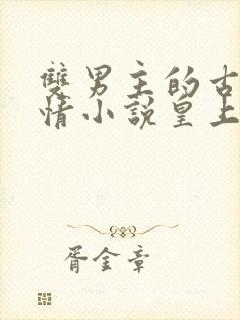 雙男主的古
情小說皇上
胥金章